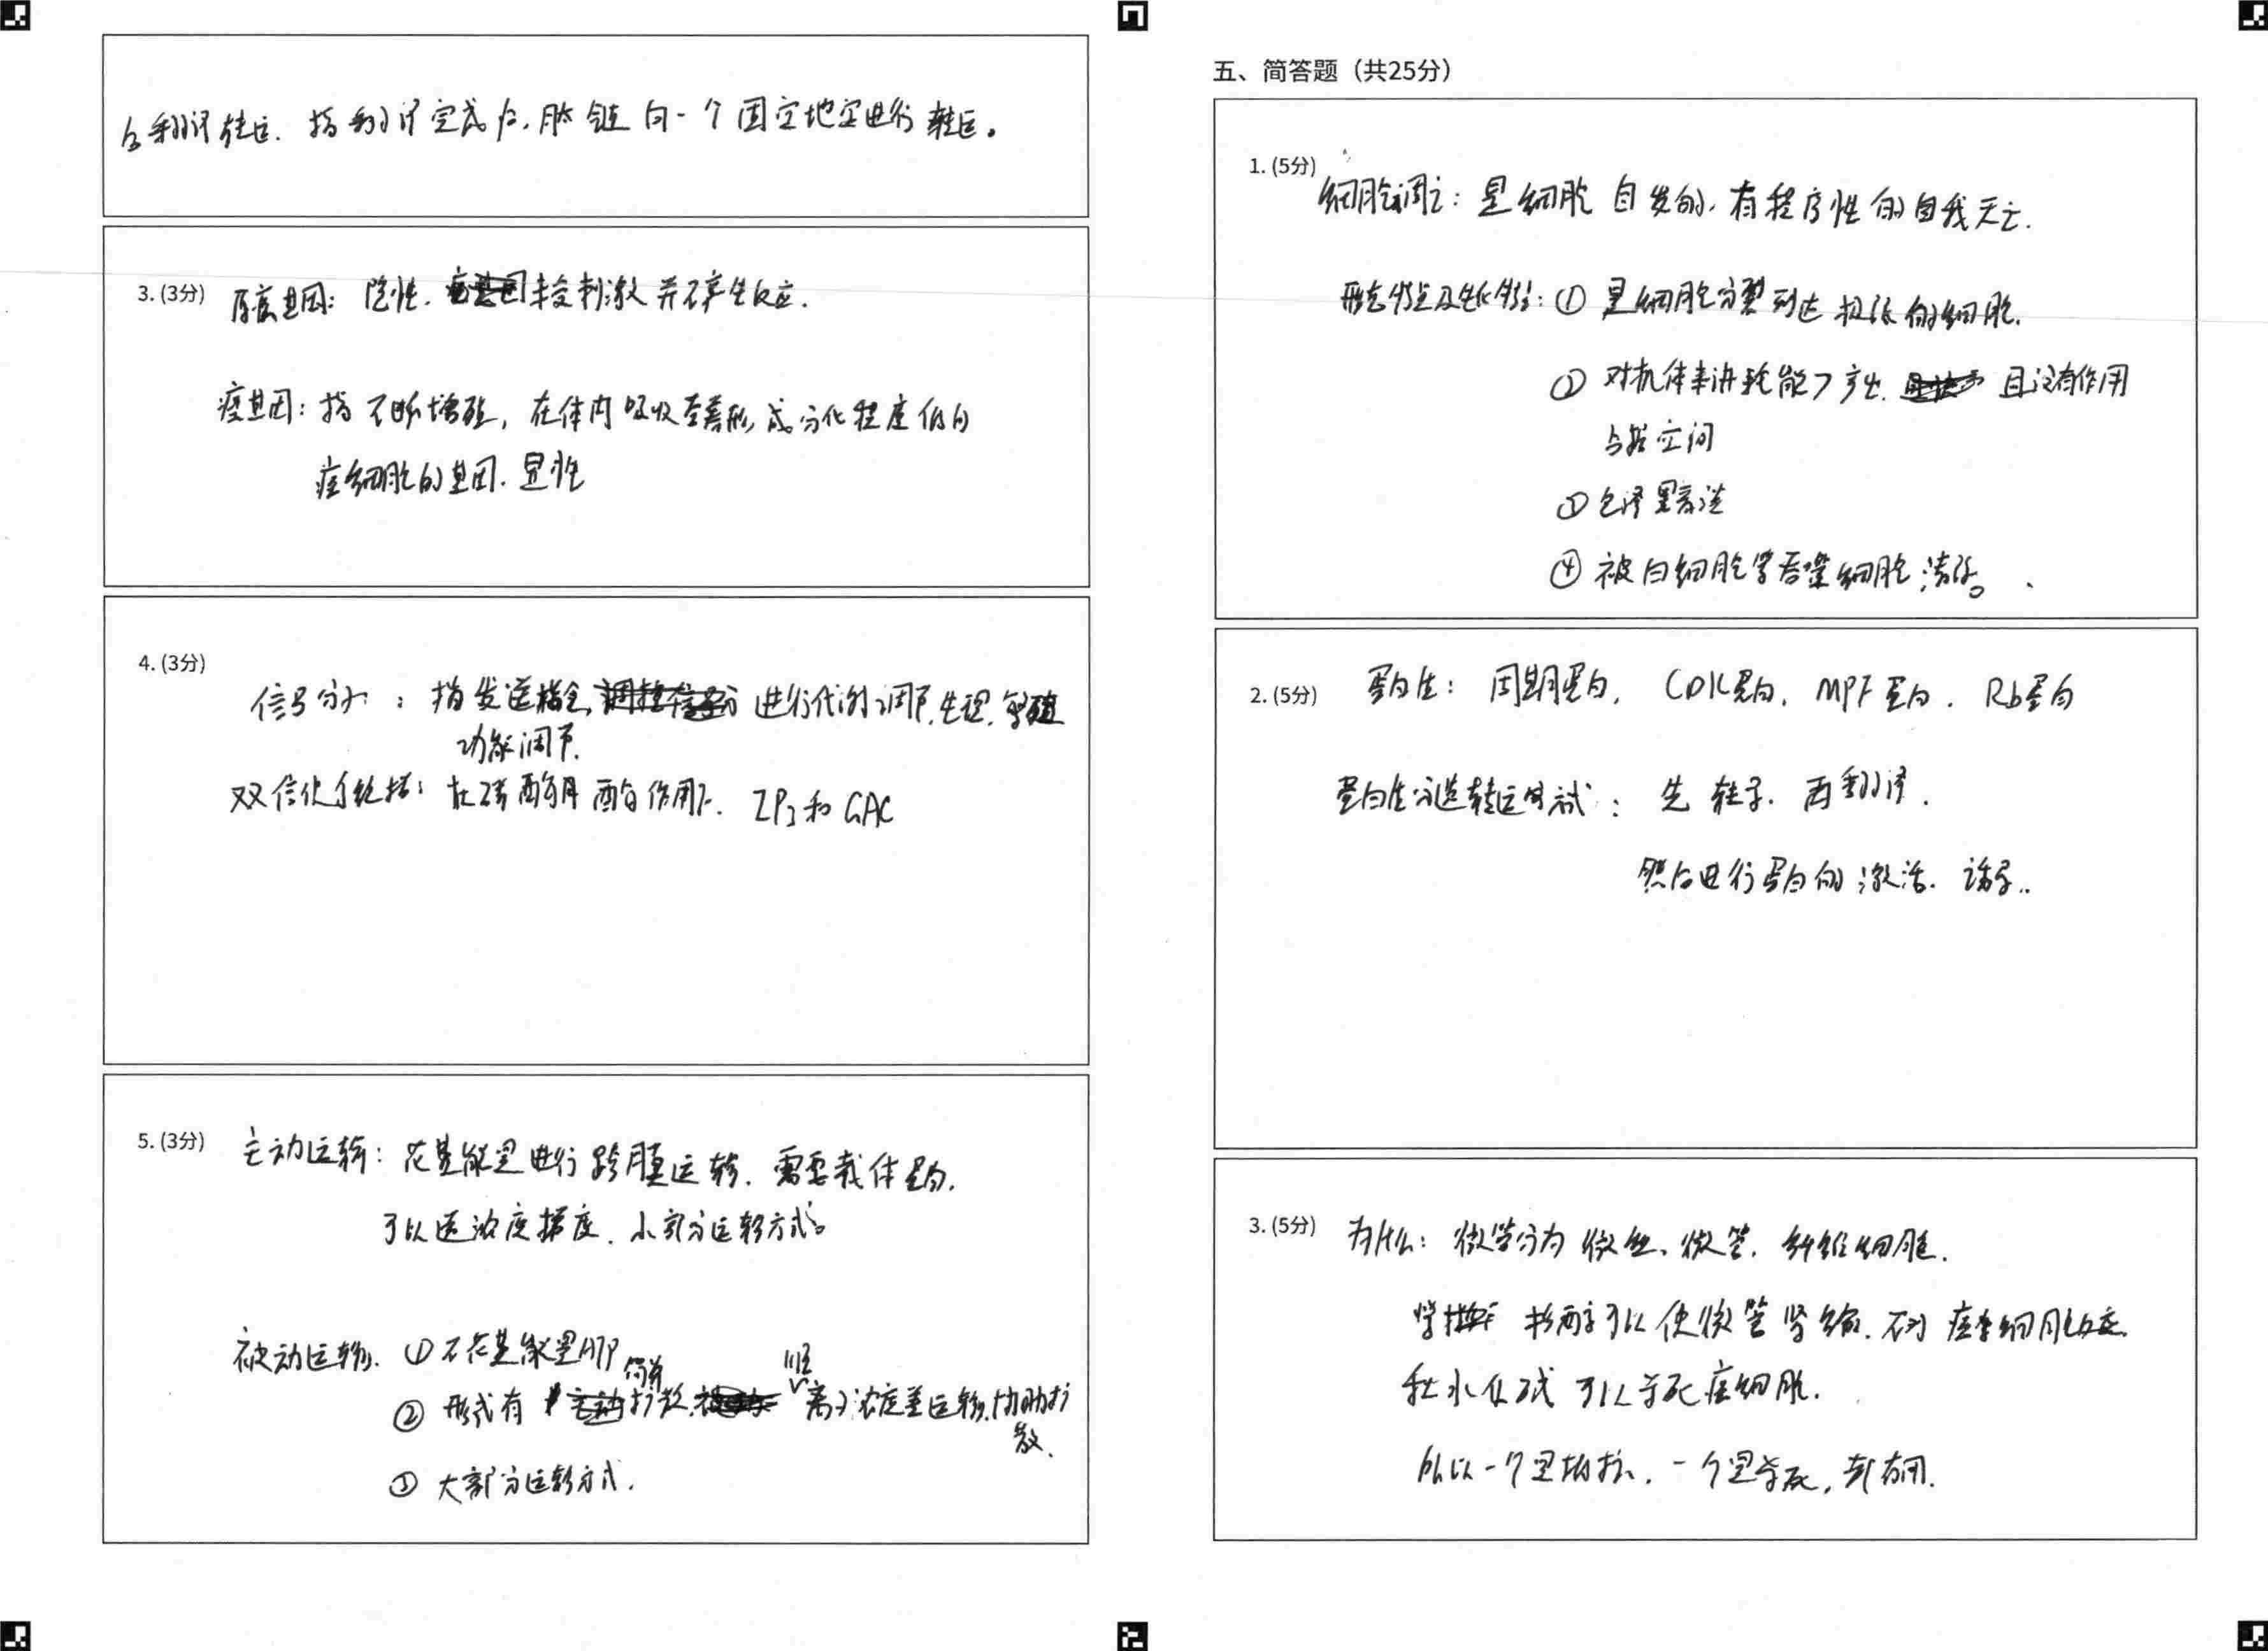 后翻译转运. 指翻译完成后,肽链向一个固定地定进行转运。
3. (3分) 原癌基因: 隐性. 接受刺激并不产生反应.
癌基因: 指不断增殖, 在体内吸收营养形成分化程度低的
癌细胞的基因. 显性
4. (3分)
信号分子: 指发送指令 进行代谢调节,生理,
功能调节.
双信使系统指: 在磷酯酶 作用下. IP3和GAC
5. (3分) 主动运输: 花费能量进行跨膜运输. 需要载体蛋白.
可以逆浓度梯度. 小部分运输方式。
被动运输. ①不花费能量ATP
简单
②形式有 扩散. 离子浓度差运输.协助扩
散.
③大部分运输方式.
五、简答题（共25分）
1. (5分) 细胞凋亡: 是细胞自发的.有程序性的自我灭亡.
形态特点及生化特征: ①是细胞分裂到达极限的细胞.
②对机体来讲耗能>产出. 且没有作用
占据空间
③色泽黑意淡
④被白细胞等吞噬细胞清除。
2. (5分) 蛋白质: 周期蛋白, CDK蛋白, MPF蛋白. Rb蛋白
蛋白质 转运 : 先转录. 再翻译.
然后进行蛋白的激活. 诱导..
3. (5分) 为什么: 微管分为微丝、微管. 纤维细胞.
紫杉醇可以使微管紧缩. 不对癌细胞
秋水仙碱可以杀死癌细胞.
所以一个是抵抗. 一个是杀死, 都有用.